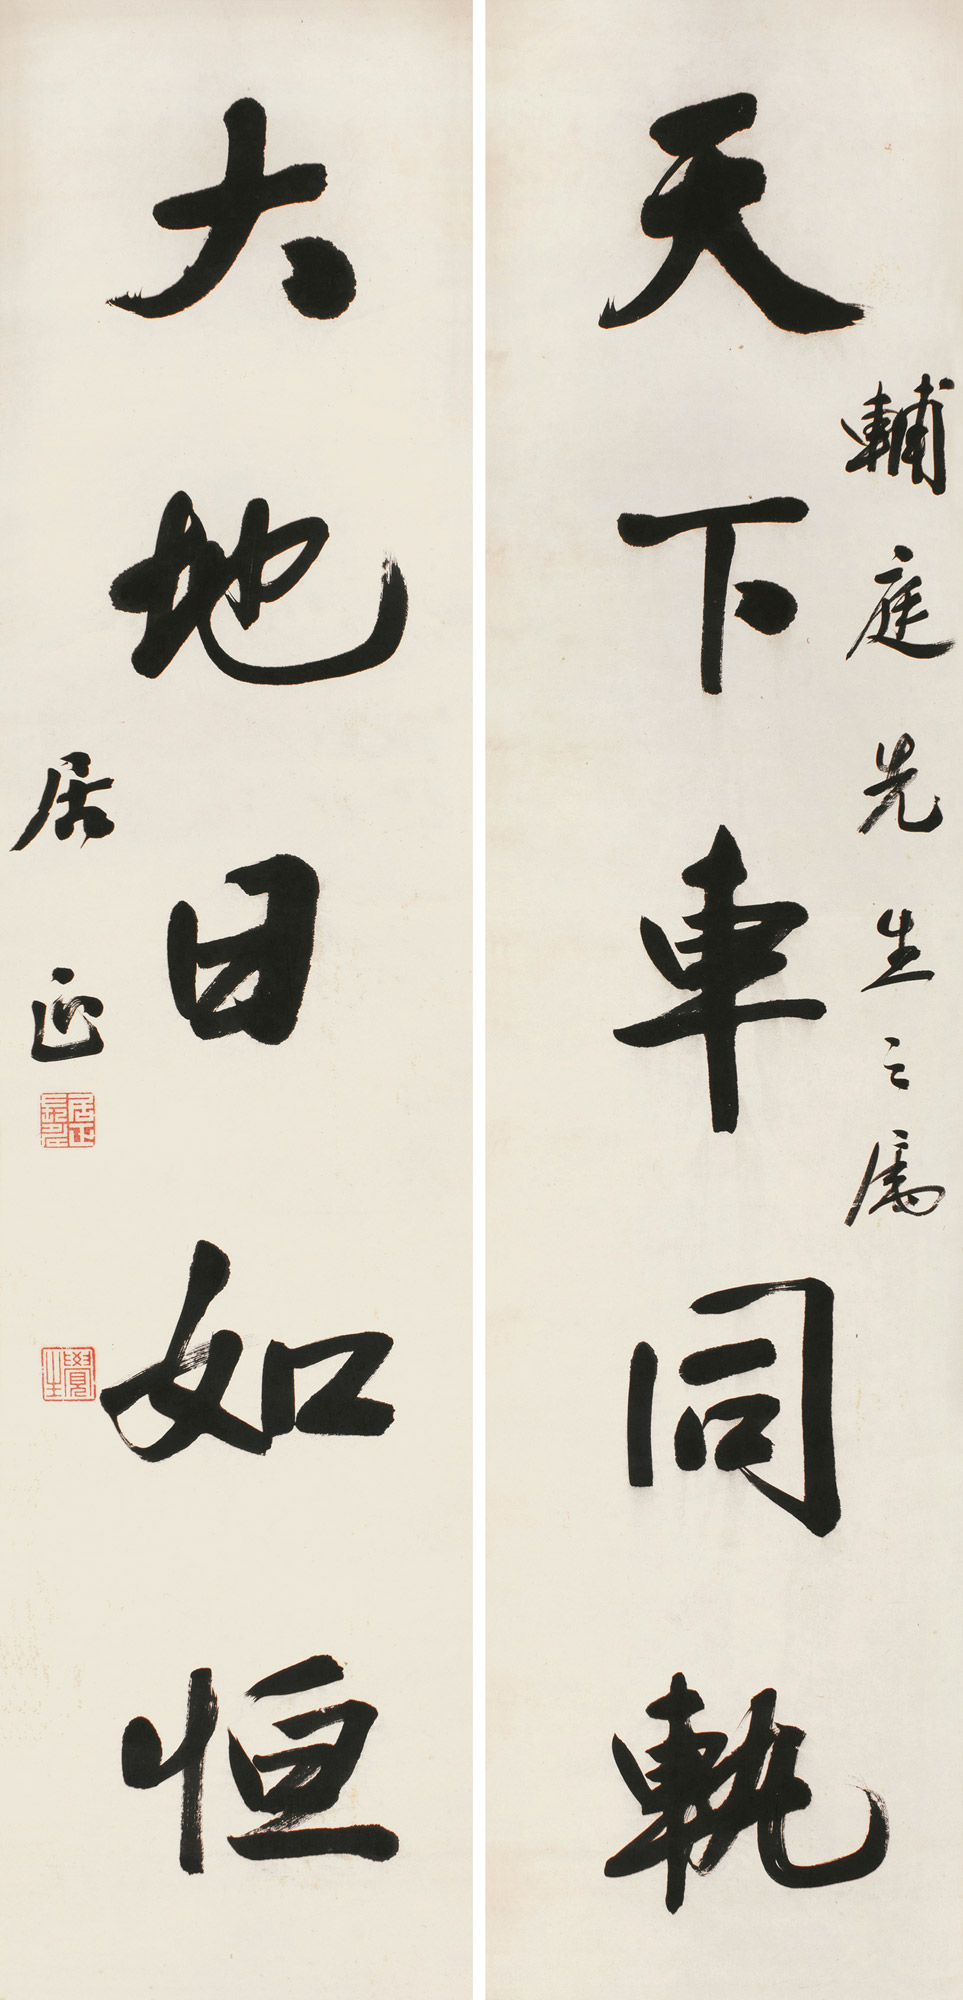 天下車同軌
輔庭先生之屬
大地日如恒
居正
居正
覺生